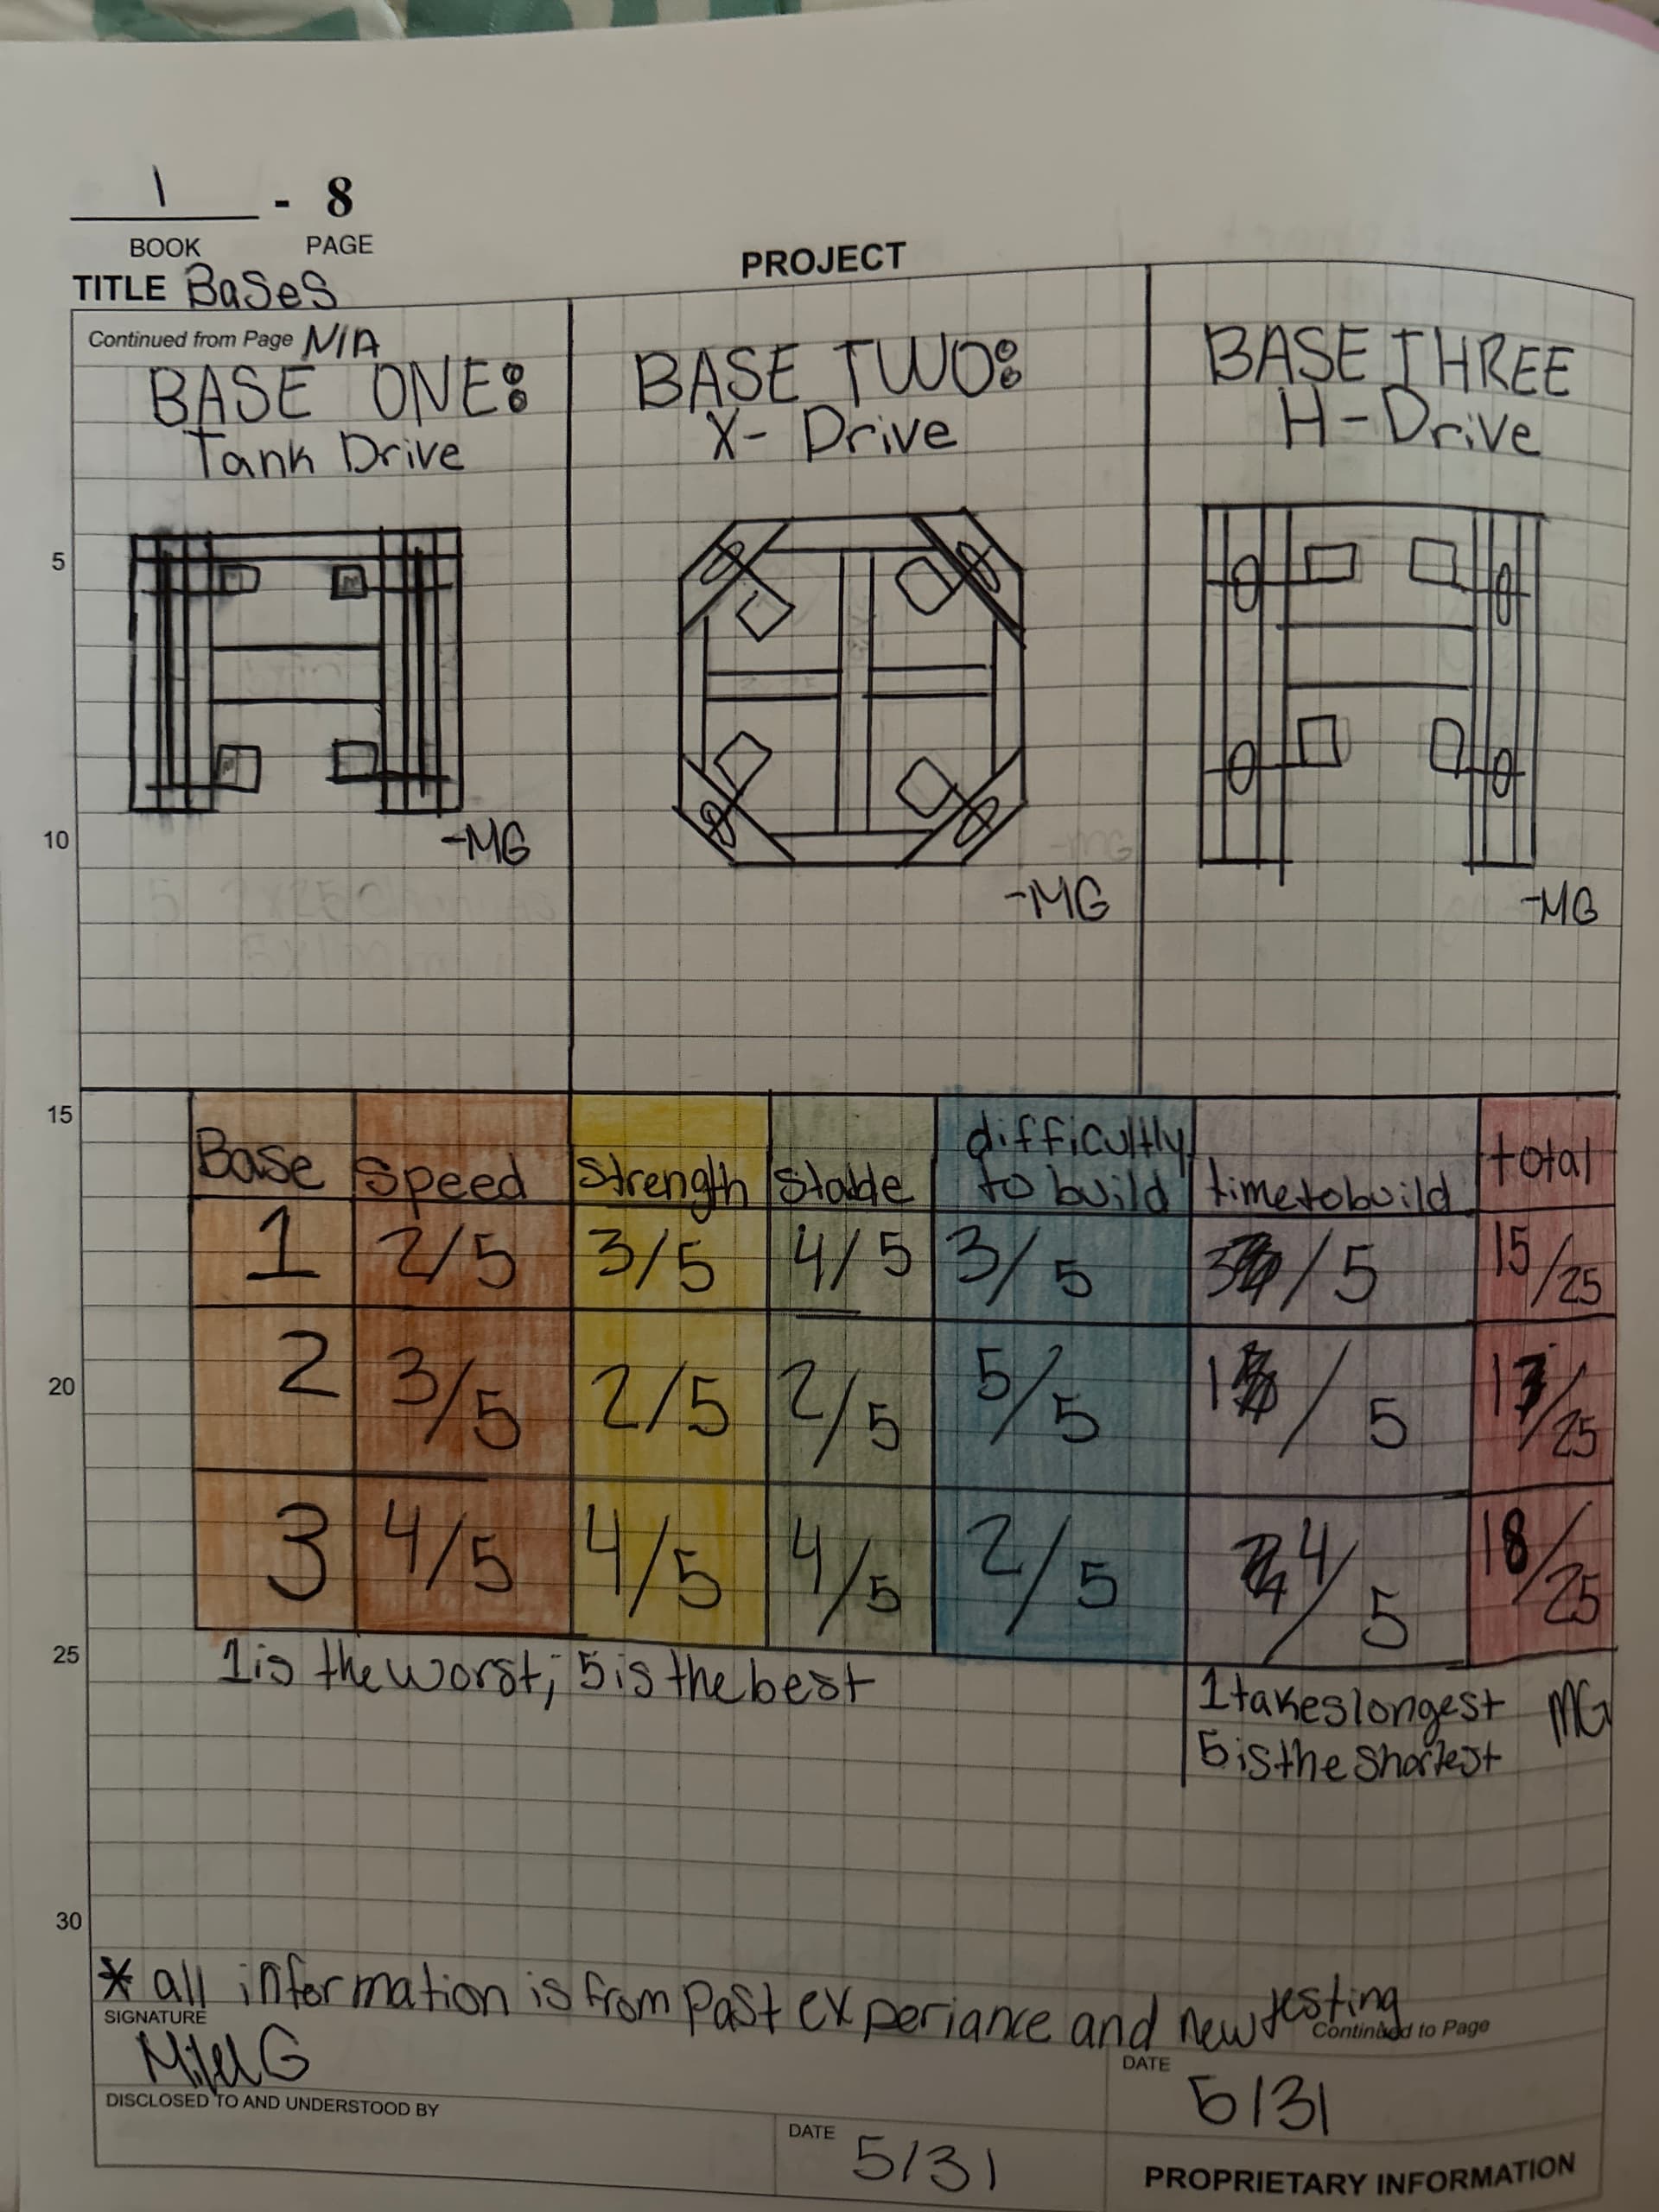 1 - 8
BOOK PAGE
PROJECT
TITLE Bases
Continued from Page N/A
BASE ONE:
Tank Drive
-MG
BASE TWO:
X- Drive
-MG
BASE THREE
H-Drive
-MG
5
10
15
20
25
30
Base speed strength stable difficultly to build time to build total
1 2/5 3/5 4/5 3/5 3/5 15/25
2 3/5 2/5 2/5 5/5 1/5 13/25
3 4/5 4/5 4/5 2/5 4/5 18/25
1 is the worst; 5 is the best
1 takes longest
5 is the shortest
MG
* all information is from past experiance and new testing
SIGNATURE
Continued to Page
DATE
5/31
DISCLOSED TO AND UNDERSTOOD BY
DATE 5/31
PROPRIETARY INFORMATION